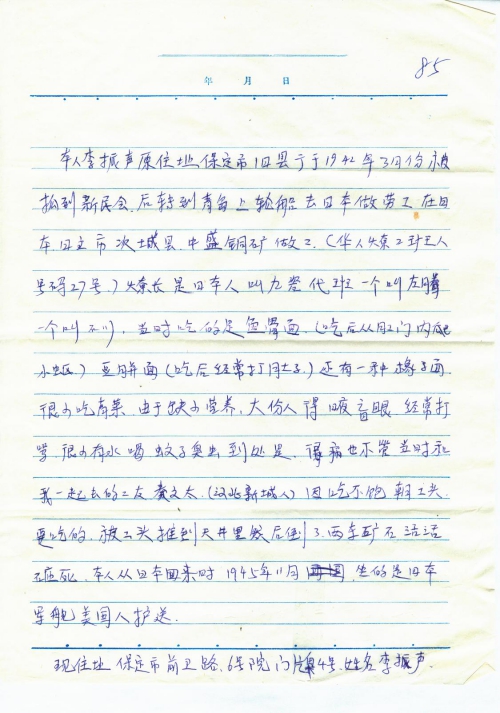 85
年 月 日
本人李振声原住址保定市旧县于于1942年3月份被
抓到新民会.后转到青岛上轮船去日本做劳工在日
本日立市茨城县中盛铜矿做工.(华人烧工班工人
号码27号.)寮长是日本人叫 代班一个叫左藤
一个叫 ),当时吃的是鱼骨面.(吃后从肛门内爬
小蛆) 豆饼面(吃后经常打肚子.)还有一种橡子面.
很少吃青菜.由于缺少营养.大份人得暖盲眼 经常打
骂 很少有水喝 蚊子臭虫到处是.得病也不管 当时和
我一起去的工友 黄文太.(河北新城人)因吃不饱 朝工头
要吃的.被工头推到天井里然后倒了.两车矿石活活
砸死.本人从日本回来时1945年11月 坐的是日本
军舰美国人护送.
现住址 保定市前卫路.6号院 门牌4号.姓名李振声.